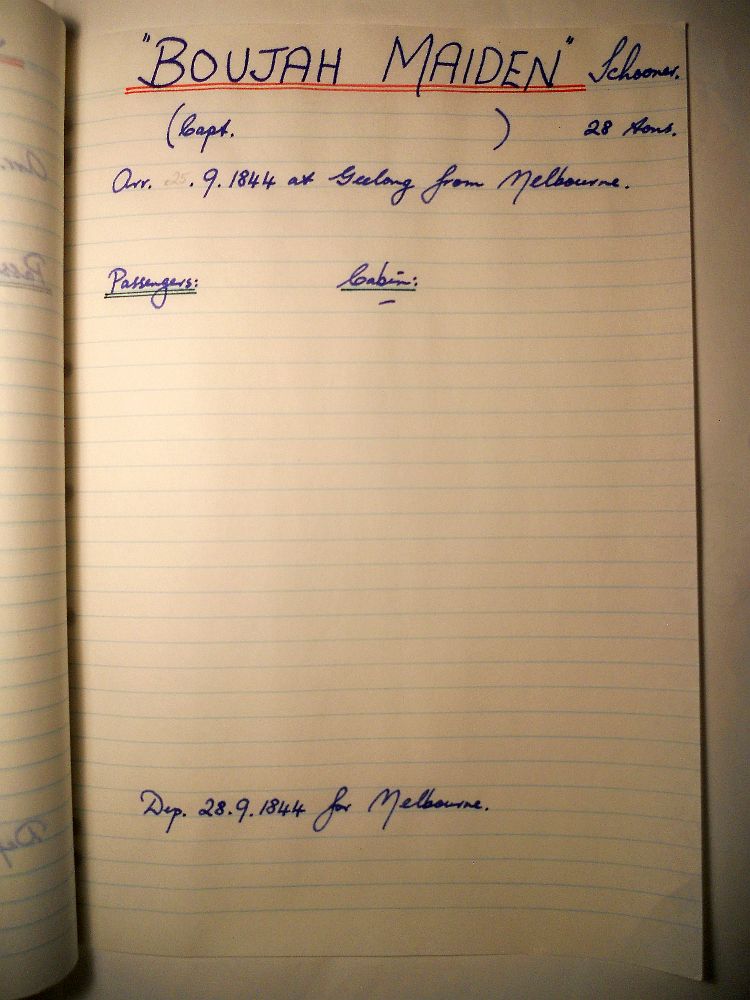 "BOUJAH MAIDEN" Schooner.
(Capt. ) 28 tons.
Arr. 25.9.1844 at Geelong from Melbourne.
Passengers: Cabin:
Dep. 28.9.1844 for Melbourne.